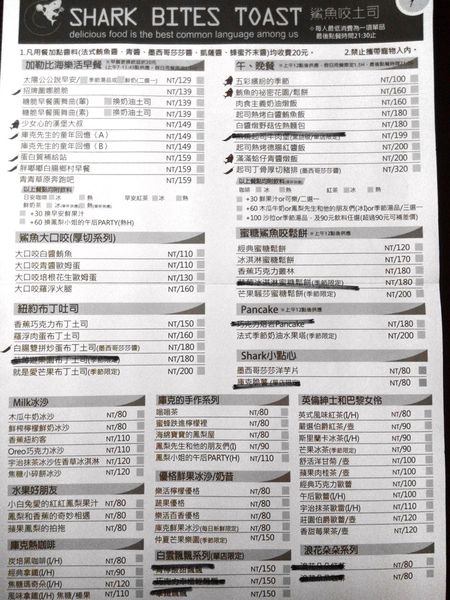 SHARK BITES TOAST 鯊魚咬土司
delicious food is the best common language among us
※每人最低消費為一項單品
最後點餐時間21:30止
1.凡用餐加點醬料(法式鮪魚醬、青醬、墨西哥莎莎醬、凱薩醬、蜂蜜芥末醬)均收費20元。
2.禁止攜帶寵物入內。
加勒比海樂活早餐
太陽公公說早安/ NT/129
招牌蘭娜脆脆 NT/139
糖脆早餐圖舞曲(葷) 換奶油土司 NT/139
糖脆早餐圖舞曲(素) 換奶油土司 NT/139
少女心的漢堡大叔 NT/149
庫克先生的童年回憶（A） NT/149
庫克先生的童年回憶（B） NT/149
蛋白質補給站 NT/159
胖嘟嘟白腸鄉村早餐 NT/159
青青草原奔跑吧 NT/159
以上餐點均附飲料
+30 換早安鮮果汁
+60 換鳳梨小姐的午后PARTY(熱H)
鯊魚大口咬(厚切系列)
大口咬白醬鮪魚 NT/110
大口咬青醬歐姆蛋 NT/110
大口咬培根花生歐姆蛋 NT/130
大口咬羅浮火腿 NT/160
紐約布丁吐司
香蕉巧克力布丁土司 NT/150
羅浮肉蛋布丁土司 NT/160
白腸雙拼炒蛋布丁土司(墨西哥莎莎醬) NT/180
NT/180
就是愛芒果布丁土司(季節限定) NT/200
午、晚餐
五彩繽紛的季節 NT/100
鮪魚的祕密花園/鬆餅 NT/160
肉食主義奶油燉飯 NT/160
起司熱烤白醬鮪魚飯 NT/180
白醬燉野菇佐熱麵包 NT/180
NT/199
起司熱烤德腸紅醬飯 NT/180
滿滿蛤仔青醬燉飯 NT/200
起司丁骨厚切豬排(墨西哥莎莎醬) NT/320
以上餐點均附飲料
+30 鮮果汁or可樂/二選一
+60 木瓜牛奶or鳳梨先生和他的朋友們(冰)or季節湯品/三選一
+100 沙拉or季節湯品、及90元飲料任選(超過90元可補差價)
蜜糖鯊魚咬鬆餅 ※上午12點後供應
經典蜜糖鬆餅 NT/120
冰淇淋蜜糖鬆餅 NT/170
香蕉巧克力叢林 NT/180
NT/180
芒果騷莎蜜糖鬆餅(季節限定) NT/200
Pancake ※上午12點後供應
NT/180
法式季節奶油水果塔(季節限定) NT/200
Shark小點心
墨西哥莎莎洋芋片 NT/80
NT/80
Milk冰沙
木瓜牛奶冰沙 NT/80
鮮榨檸檬鮮奶冰沙 NT/80
香蕉紐約客 NT/110
Oreo巧克力冰沙 NT/110
宇治抹茶冰沙佐香草冰淇淋 NT/120
焦糖小碎餅冰沙 NT/120
水果好朋友
小白兔愛的紅紅鳳梨果汁 NT/80
鳳梨和香蕉的奇妙相遇 NT/80
蘋果鳳梨的拍拖 NT/80
庫克熱咖啡
炭培黑咖啡(I/H) NT/80
經典拿鐵(I/H) NT/90
焦糖瑪奇朵(I/H) NT/110
風味拿鐵(I/H) 焦糖/榛果 NT/110
庫克的手作系列
嗆嗆茶 NT/80
蜜蜂跌進檸檬裡 NT/80
海綿寶寶的鳳梨屋 NT/80
鳳梨先生和他的朋友們(I) NT/90
鳳梨小姐的午后PARTY(H) NT/110
優格鮮果冰沙/奶昔
樂活檸檬優格 NT/80
蔬果優格 NT/80
樂活百香優格 NT/80
庫克鮮果冰沙(每日新鮮限定) NT/80
仲夏芒果樂園(季節限定) NT/130
白雲飄飄系列(單店限定)
NT/150
NT/150
NT/150
英倫紳士和巴黎女伶
英式風味紅茶(I/H) NT/80
嚴選伯爵紅茶/壺 NT/90
斯里蘭卡冰茶(I/H) NT/90
芒果冰茶(季節限定) NT/90
舒活洋甘菊/壺 NT/100
蘋果肉桂茶/壺 NT/100
經典巧克力歐蕾(I/H) NT/100
午后歐蕾(I/H) NT/100
宇治抹茶歐蕾(I/H) NT/110
莊園伯爵歐蕾(I/H) NT/120
香甜莓果茶/壺 NT/120
浪花朵朵系列
NT/80
NT/80